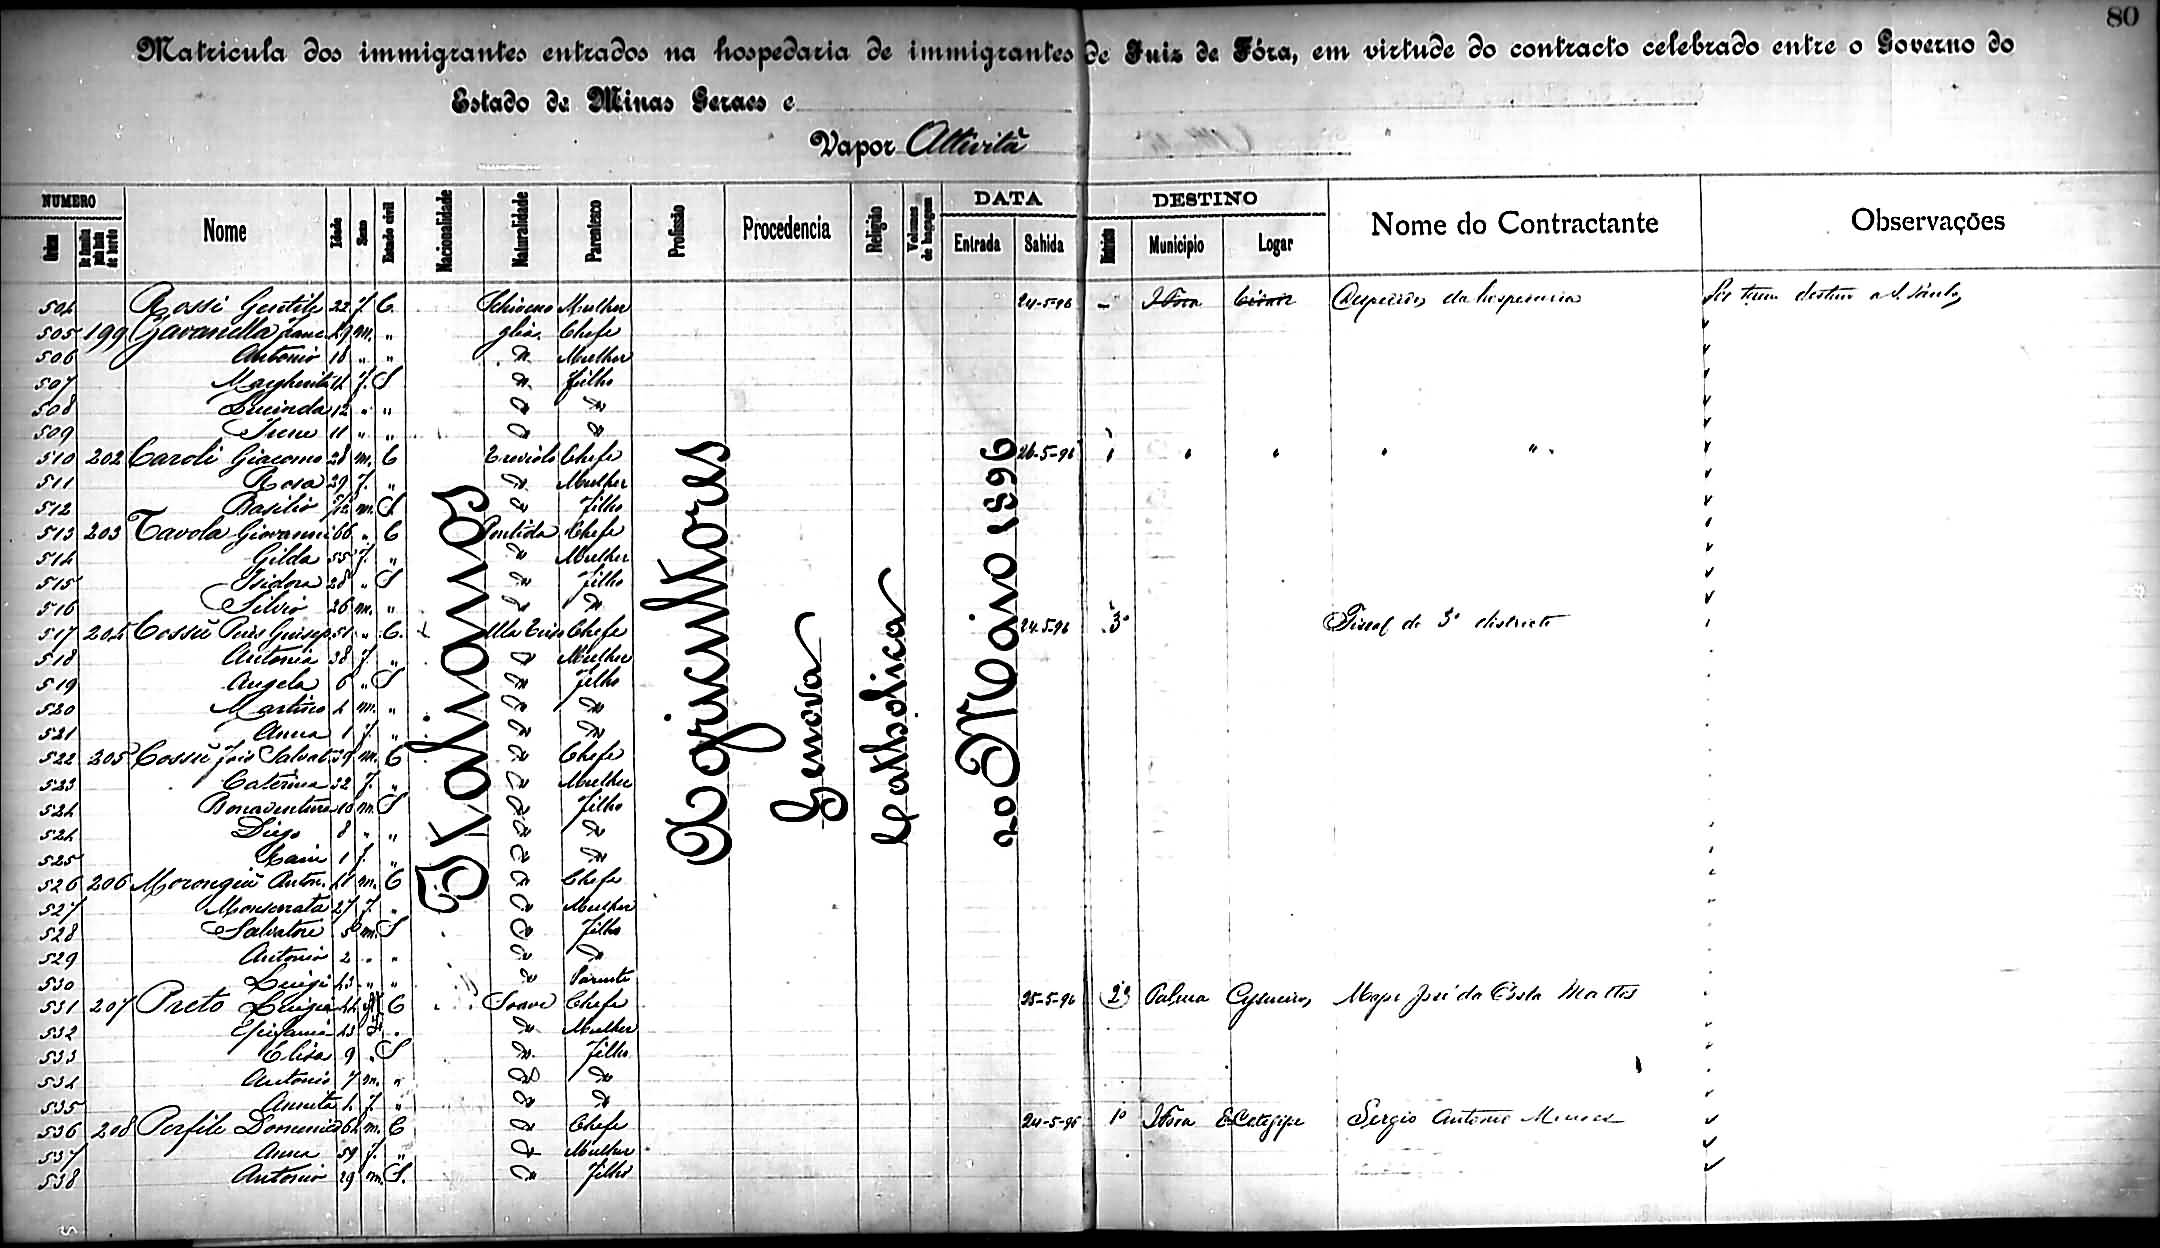 80
Matricula dos immigrantes entrados na hospedaria de immigrantes de Juiz de Fóra, em virtude do contracto celebrado entre o Governo do
Estado de Minas Geraes e
Vapor Attività
NUMERO DATA DESTINO
Ordem Nome Idade Sexo Estado civil Nacionalidade Naturalidade Parentesco Profissão Procedencia Religião Volumes de bagagem Entrada Sahida Municipio Logar Nome do Contractante Observações
Italianos
Agricultores
Genova
Catholica
20 Maio 1896
504 Rossi Gentile 22 f. C. Mulher 24-5-96 J Fora da hospedaria
505 199 m. " Chefe
506 Antonio 18 " " " Mulher
507 Margherita f. S " filho
508 Lucinda 12 " " " "
509 Irene 11 " " " "
510 202 Caroli Giacomo 28 m. C Chefe 26-5-96 " " " " "
511 Rosa 29 f. " " Mulher
512 Basilio m. S " filho
513 203 Tavola Giovanni 66 " C Pontida Chefe
514 Gilda 55 f. " " Mulher
515 Isidora 28 " S " filho
516 Silvio 26 m. " " "
517 204 Cossu 51 " C. Chefe 24-5-96 3º Fiscal do 3º districto
518 Antonia 38 f. " " Mulher
519 Angela 6 " S " filho
520 Martino 4 m. " " "
521 Anna 1 f. " " "
522 205 Cossu 39 m. C " Chefe
523 Caterina 32 f. " " Mulher
524 Bonaventura 10 m. S " filho
524 Diego 8 " " " "
525 1 f. " " "
526 206 Anton. 41 m. C " Chefe
527 Monserrata 27 f. " " Mulher
528 Salvatore 5 m. S " filho
529 Antonio 2 " " " "
530 Luigi 43 " " " Parente
531 207 Preto 44 C Soave Chefe 25-5-96 2º Palma Cysneiros José da Costa Mattos
532 43 " " Mulher
533 Elisa 9 " S " filho
534 Antonio 7 m. " " "
535 Annita 4 f. " " "
536 208 Perfile 64 m. C " Chefe 24-5-96 1º J Fora Sergio Antonio
537 Anna 59 f. " " Mulher
538 Antonio 29 m. S. " filho